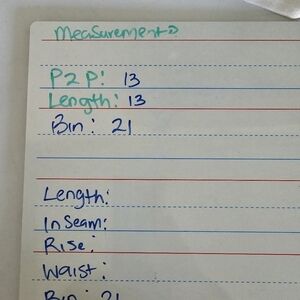 Measurements
P2P: 13
Length: 13
Bin: 21
Length:
Inseam:
Rise:
Waist:
Bin: 21